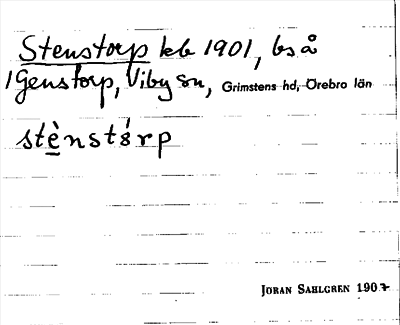 Stenstorp kb 1901, bs å
1 Genstorp, Viby sn, Grimstens hd, Örebro län
stè̱nstór̀p
JÖRAN SAHLGREN 1907